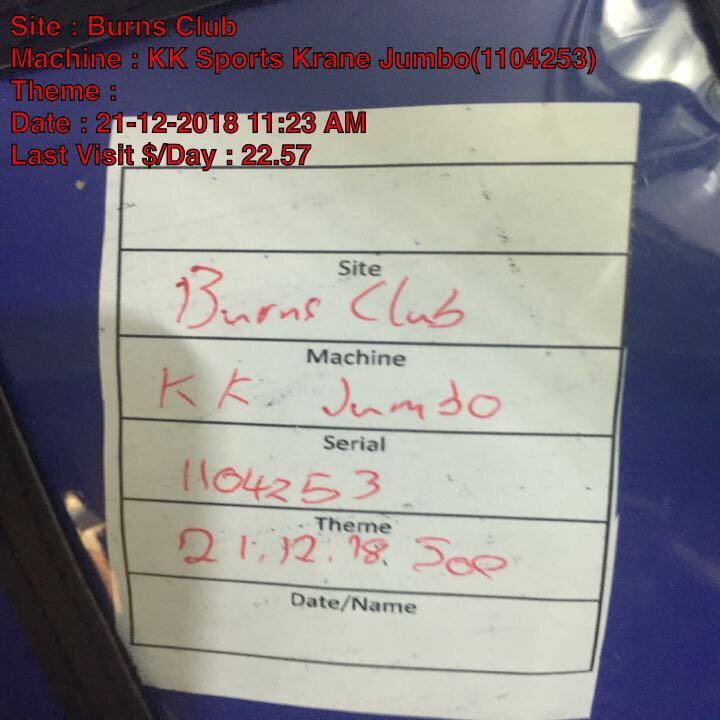 Site : Burns Club
Machine : KK Sports Krane Jumbo(1104253)
Theme :
Date : 21-12-2018 11:23 AM
Last Visit $/Day : 22.57
Site
Burns Club
Machine
KK Jumbo
Serial
1104253
Theme
21.12.18. Joe
Date/Name